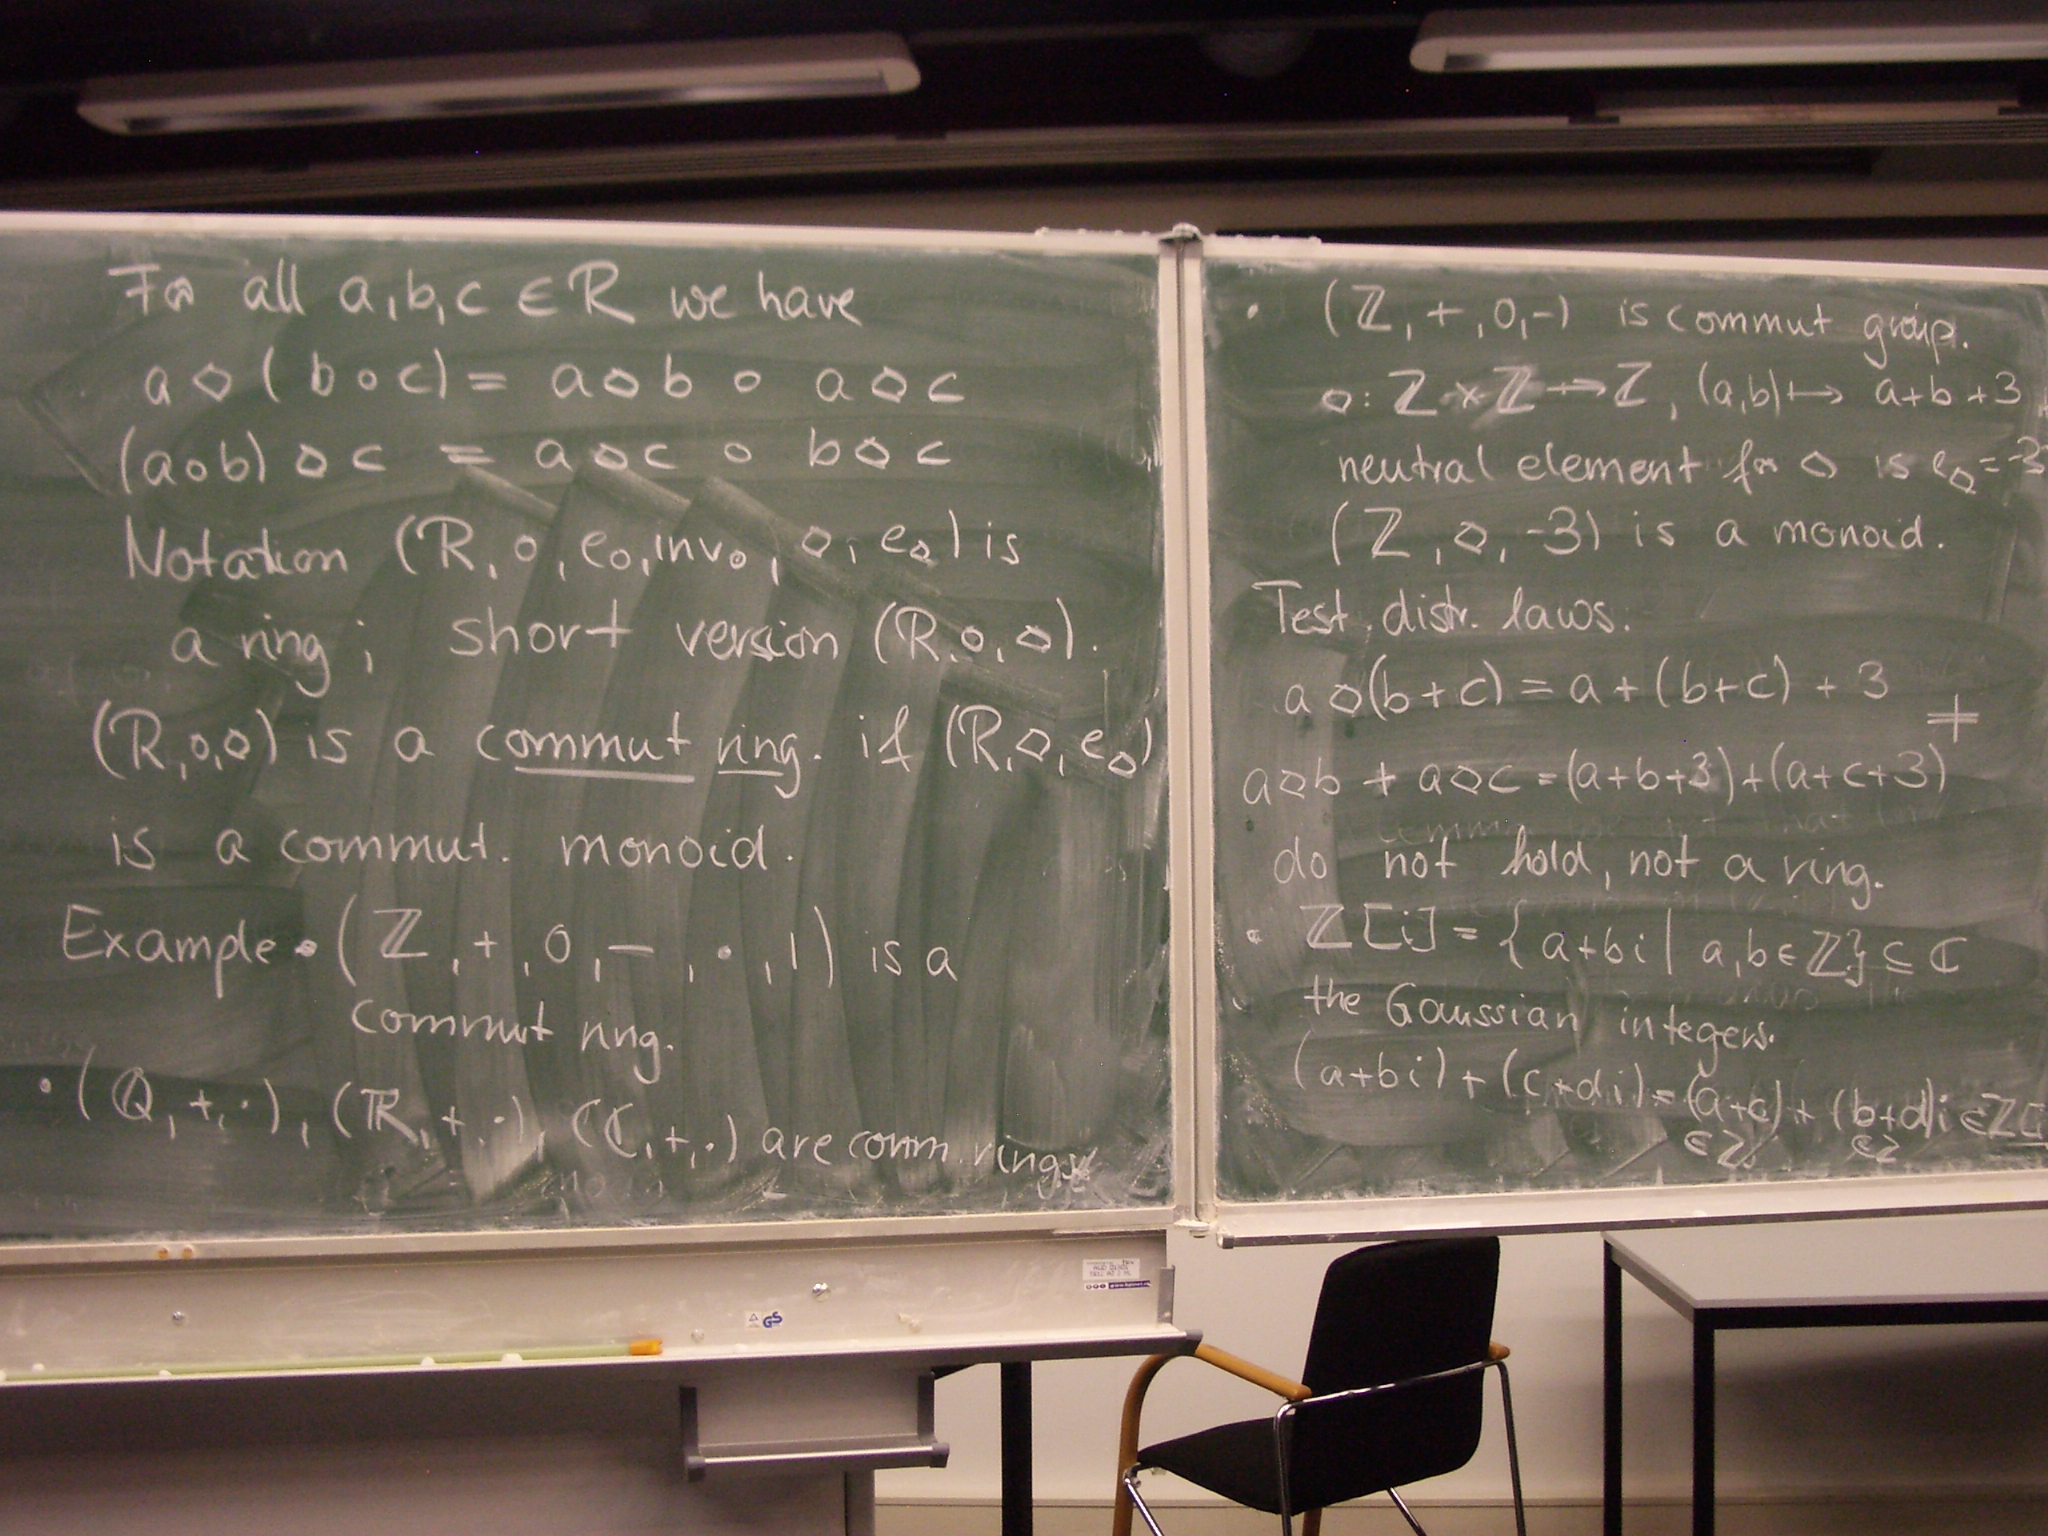 For all a, b, c ∈ R we have
a ◇ (b ∘ c) = a ◇ b ∘ a ◇ c
(a ∘ b) ◇ c = a ◇ c ∘ b ◇ c
Notation (R, ∘, e∘, inv∘, ◇, e◇) is
a ring; short version (R, ∘, ◇).
(R, ∘, ◇) is a commut ring. if (R, ◇, e◇)
is a commut. monoid.
Example • (ℤ, +, 0, −, ·, 1) is a
commut ring.
• (ℚ, +, ·), (ℝ, +, ·), (ℂ, +, ·) are comm. rings
• (ℤ, +, 0, −) is commut group.
◇: ℤ × ℤ → ℤ, (a,b) ↦ a + b + 3
neutral element for ◇ is e◇ = -3
(ℤ, ◇, -3) is a monoid.
Test distr. laws.
a ◇ (b + c) = a + (b + c) + 3
≠
a ◇ b + a ◇ c = (a + b + 3) + (a + c + 3)
do not hold, not a ring.
• ℤ[i] = {a + bi | a, b ∈ ℤ} ⊆ ℂ
the Gaussian integers.
(a + bi) + (c + di) = (a + c) + (b + d)i ∈ ℤ[
∈ ℤ ∈ ℤ
GS